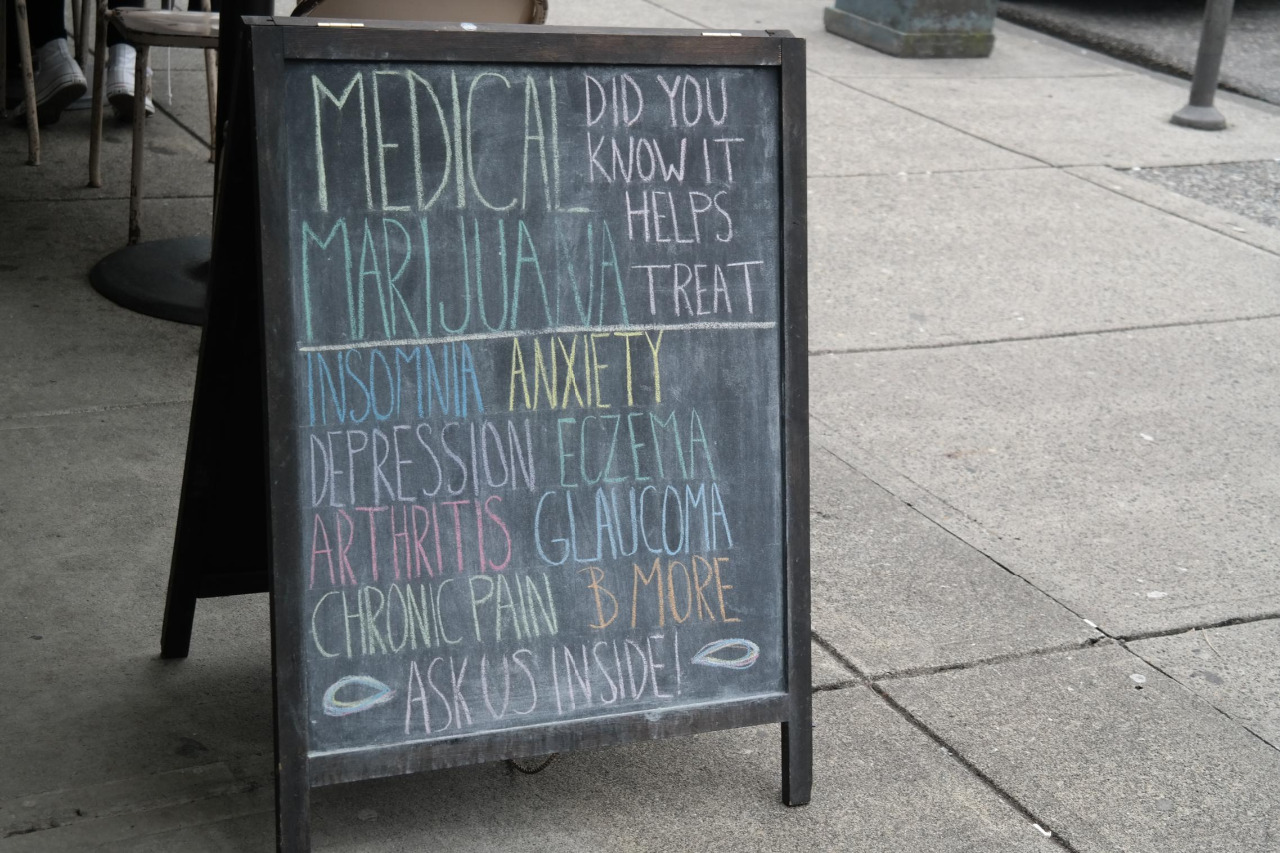 MEDICAL
MARIJUANA
DID YOU
KNOW IT
HELPS
TREAT
INSOMNIA ANXIETY
DEPRESSION ECZEMA
ARTHRITIS GLAUCOMA
CHRONIC PAIN B MORE
ASK US INSIDE!